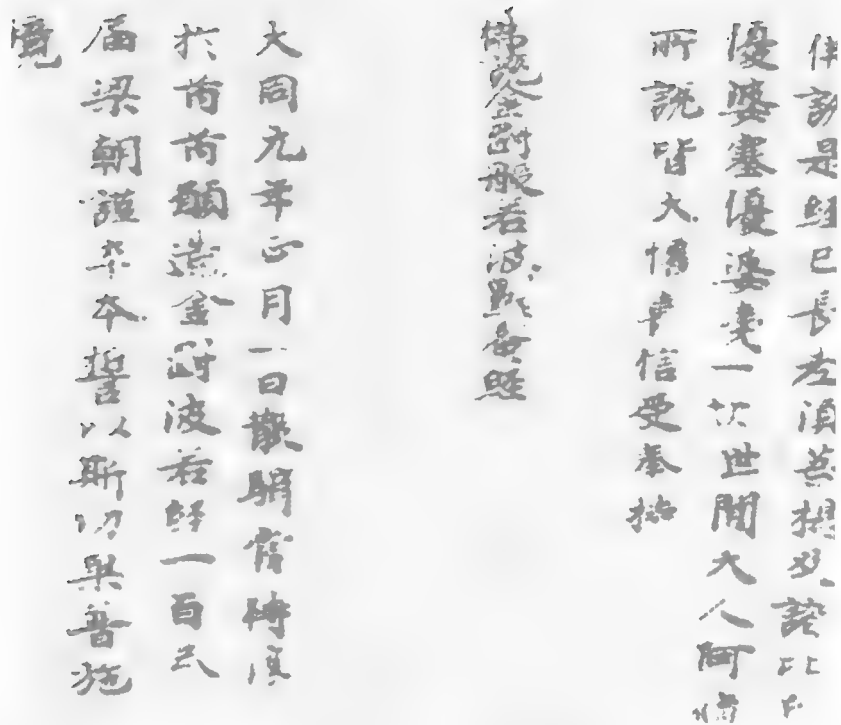 佛說是經已長老須菩提及諸比
優婆塞優婆夷一切世間天人阿脩
所說皆大懽喜信受奉持
佛說金剛般若波羅蜜經
大同元年正月一日散騎常侍淳
於芮芮願造金剛波若經一百
屆梁朝謹卒本誓以斯功果普施
境